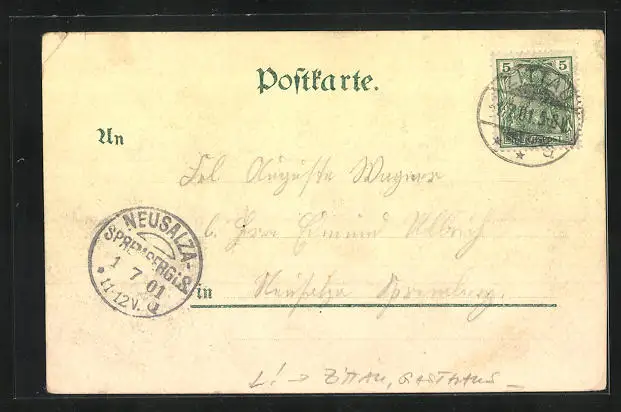 Postkarte.
5 5
ZITTAU
An
Frl. Auguste Wagner
b. Herrn Edmund Ulbrich
NEUSALZA-
SPREMBERG i. S.
1 7 01
* 11-12V. a
in Neusalza Spremberg.
L! → ZITTAU, GASTHAUS